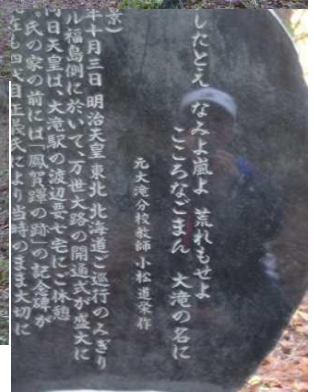 したとえ なみよ嵐よ 荒れもせよ
こころなごまん 大滝の名に
元大滝分校教師 小松 道栄作
景)
年十月三日 明治天皇 東北 北海道ご巡行のみぎり
ル福島側に於いて、万世大路の開通式が盛大に
同日天皇は、大滝駅の渡辺要七宅にご休憩
氏の家の前には「鳳賀蹕の跡」の記念碑が
在も四代目正義氏により当時のまま大切に